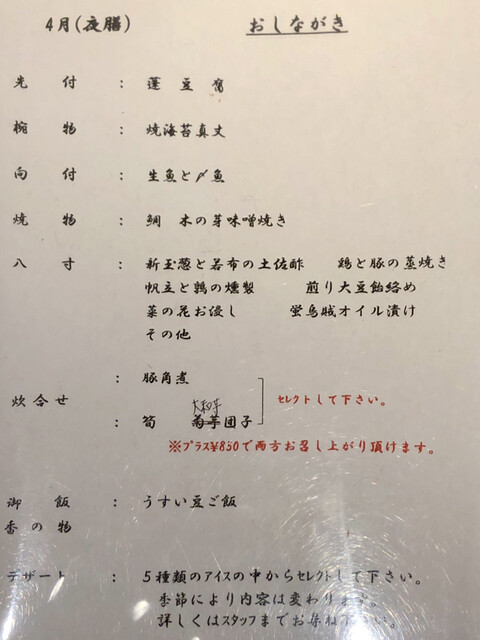 4月(夜膳) おしながき
先付 : 蓬豆腐
椀物 : 焼海苔真丈
向付 : 生魚と〆魚
焼物 : 鯛 木の芽味噌焼き
八寸 : 新玉葱と若布の土佐酢 鶏と豚の蒸焼き
帆立と鶉の燻製 煎り大豆飴絡め
菜の花お浸し 蛍烏賊オイル漬け
その他
炊合せ : 豚角煮
セレクトして下さい。
大和芋
: 筍 菊芋団子
※プラス¥850で両方お召し上がり頂けます。
御飯 : うすい豆ご飯
香の物
デザート : 5種類のアイスの中からセレクトして下さい。
季節により内容は変わります。
詳しくはスタッフまでお尋ね下さい。